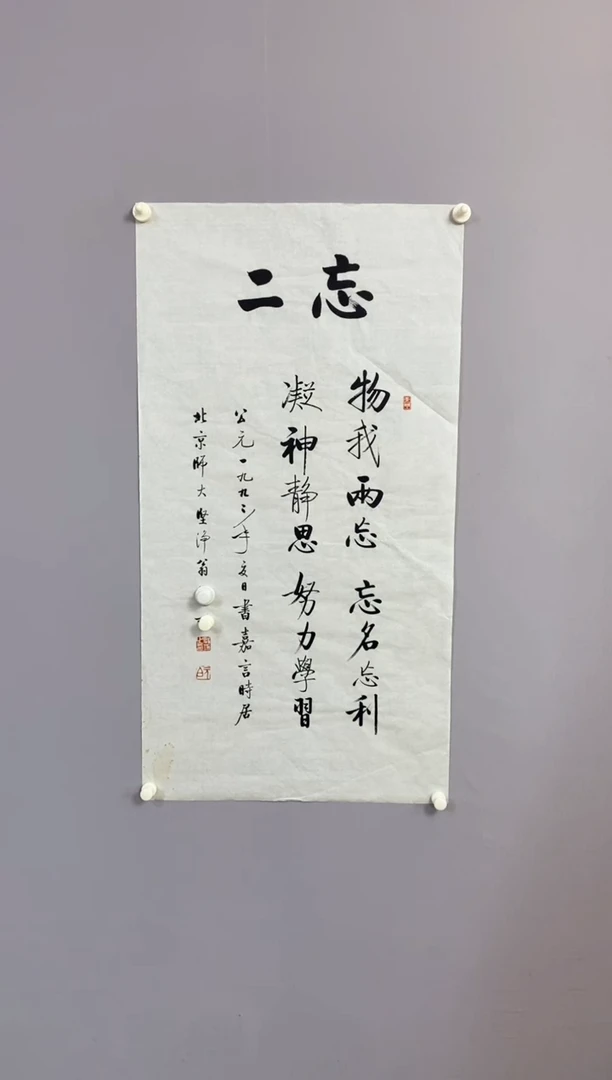 忘二
物我兩忘 忘名忘利
凝神静思 努力學習
公元一九九二年亥日書嘉言時居
北京師大堅淨翁